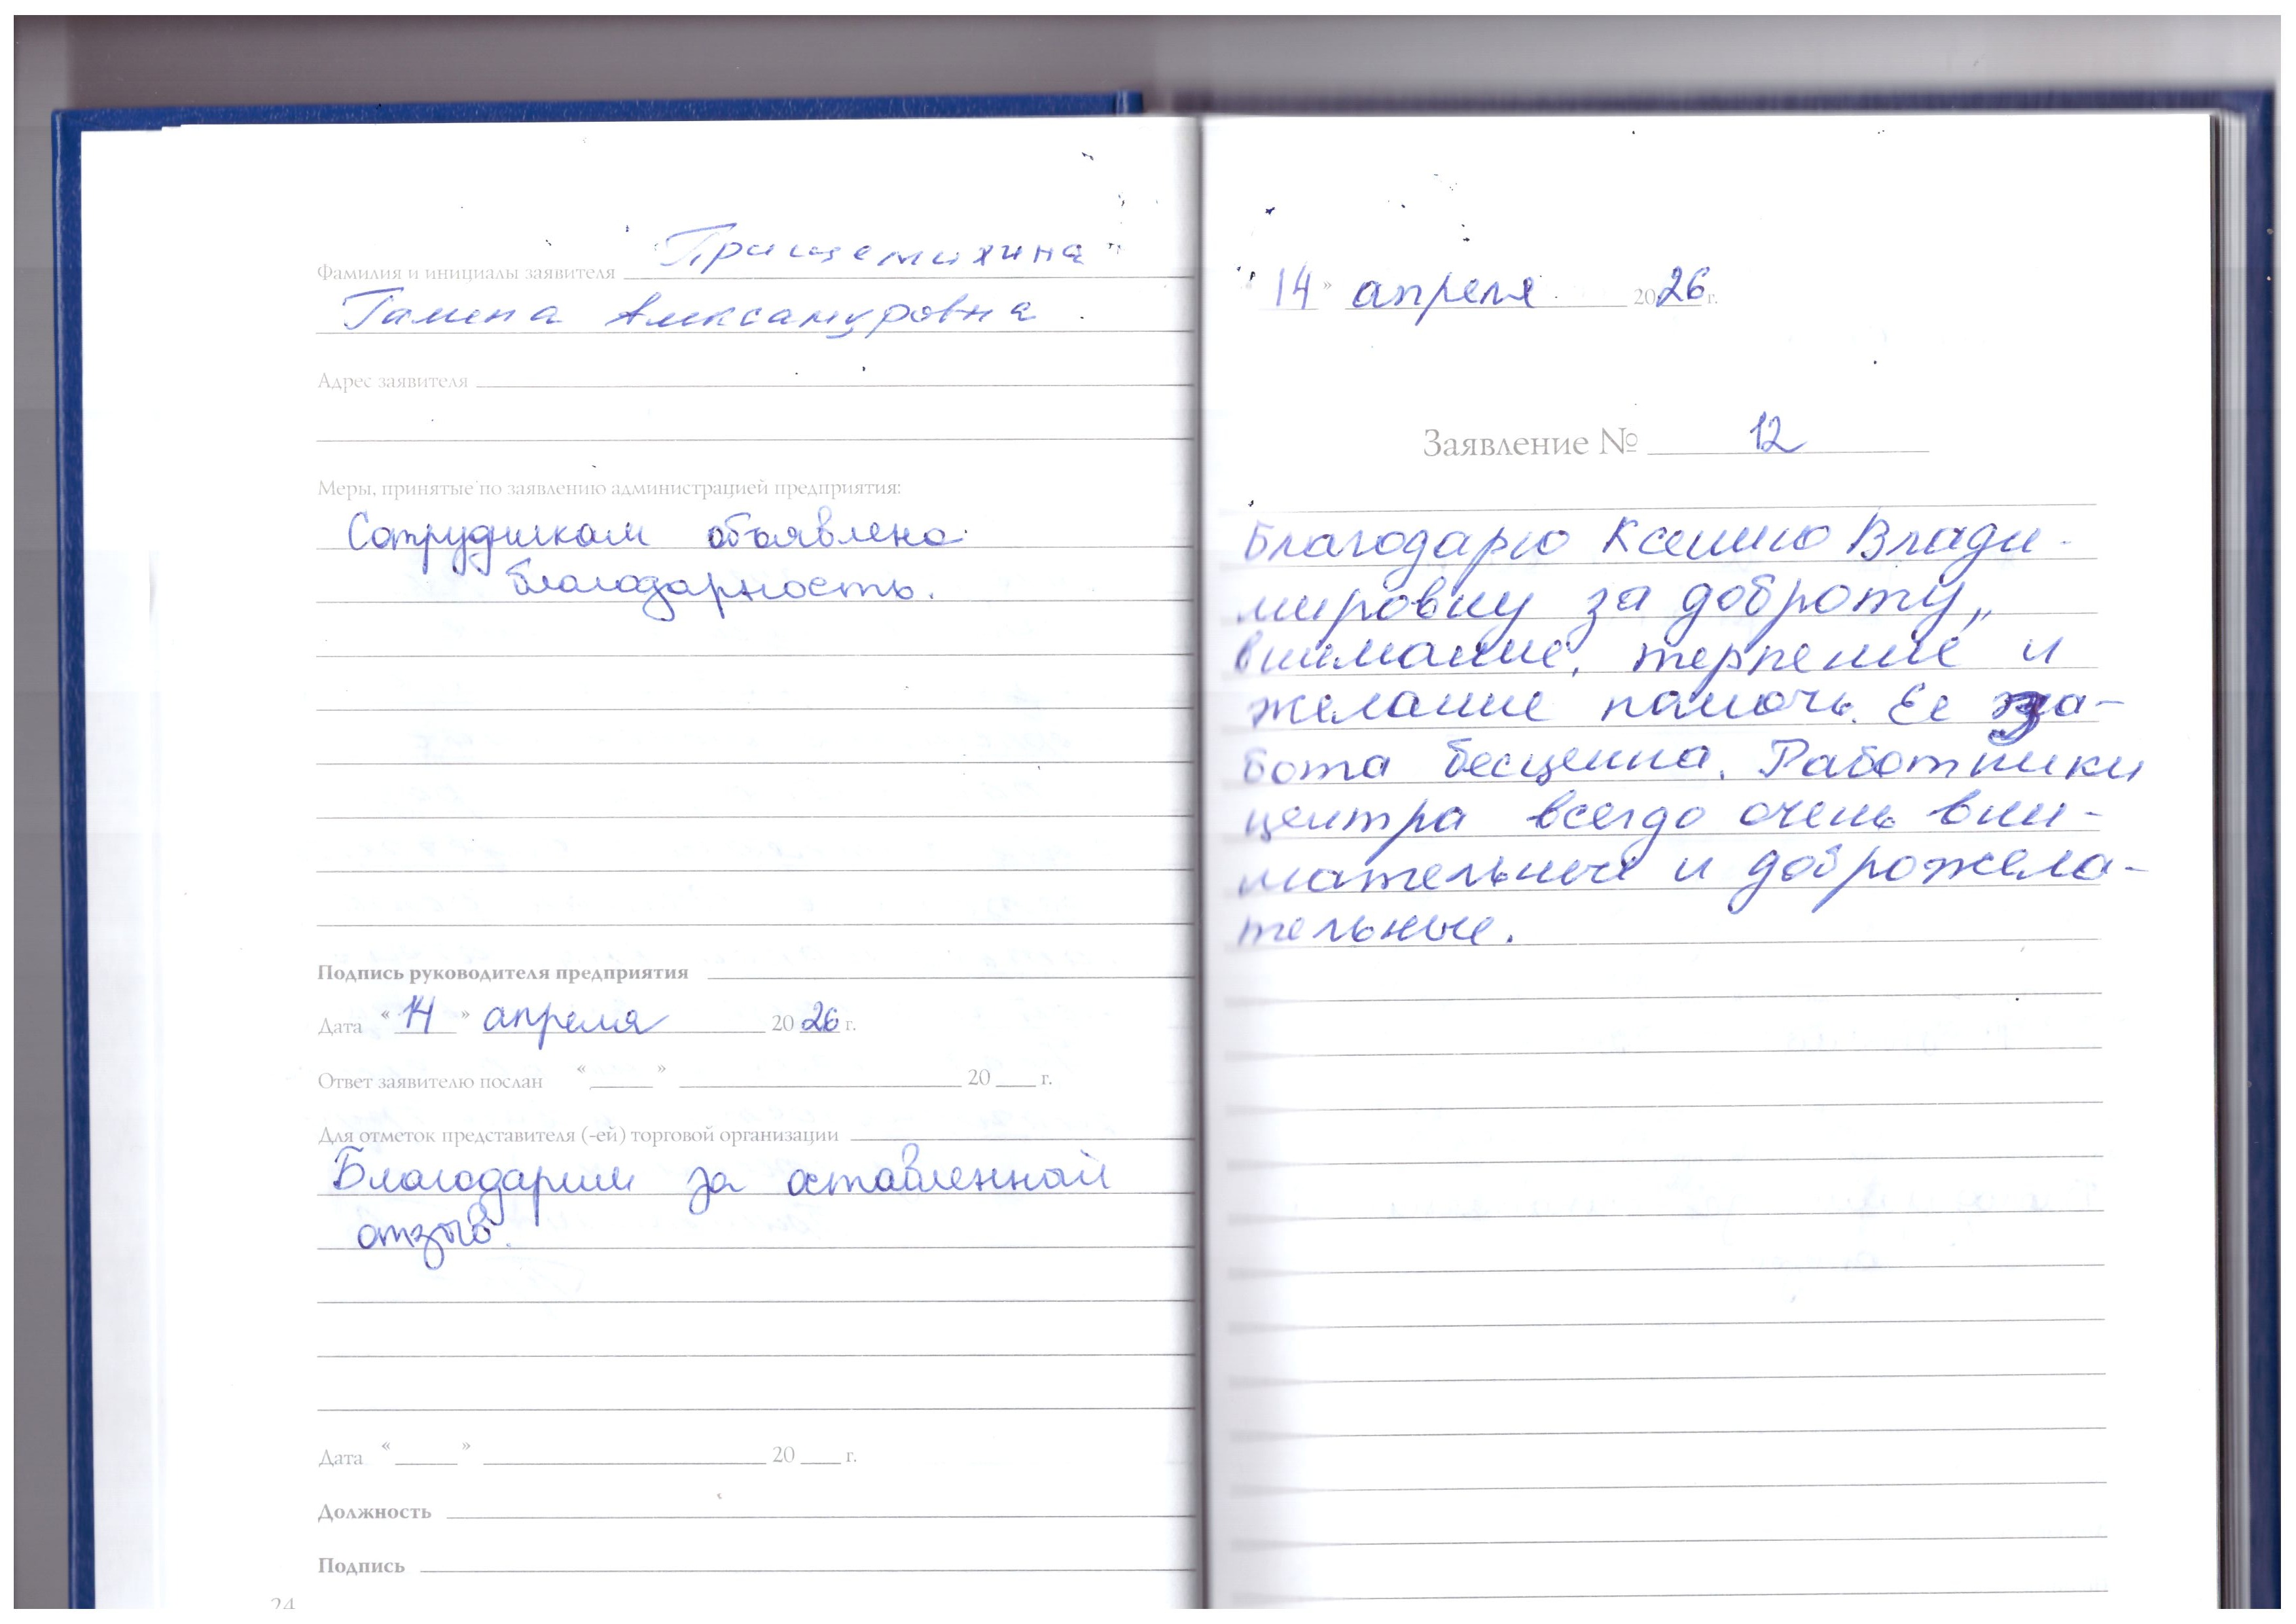 Фамилия и инициалы заявителя Прищемихина
Галина Александровна
Адрес заявителя
Меры, принятые по заявлению администрацией предприятия:
Сотрудникам объявлена
благодарность.
Подпись руководителя предприятия
Дата « 14 » апреля 20 26 г.
Ответ заявителю послан « » 20 г.
Для отметок представителя (-ей) торговой организации
Благодарим за оставленный
отзыв.
Дата « » 20 г.
Должность
Подпись
24
" 14 » апреля 2026 г.
Заявление № 12
Благодарю Ксению Влади-
мировну за доброту,
внимание, терпение и
желание помочь. Ее за-
бота бесценна. Работники
центра всегда очень вни-
мательные и доброжела-
тельные.